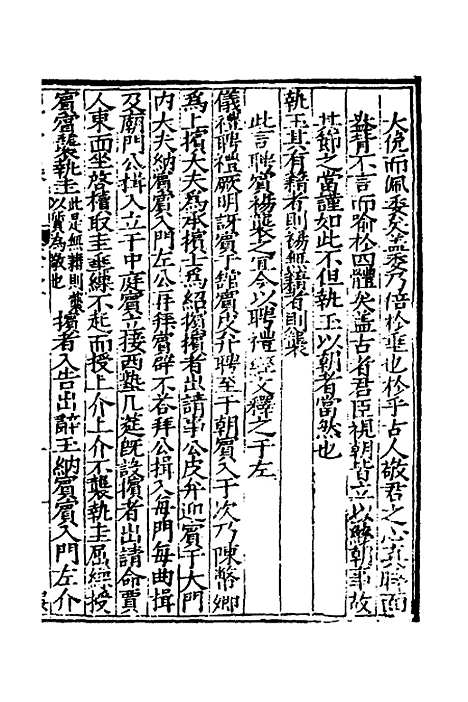 大俛而佩委於地乃倍於垂也於乎古人敬君之心其晬面
盎背不言而喻於四體矣蓋古者君臣視朝皆立以觧朝事故
其節之當謹如此不但執玉以朝者當然也
執玉其有藉者則裼無藉者則襲
此言聘賓裼襲之宜今以聘禮經文釋之于左
儀禮聘禮厥明訝賓于舘賓皮弁聘至于朝賓入于次乃陳幣卿
為上擯大夫為承擯士為紹擯擯者出請事公皮弁迎賓于大門
内大夫納賓賓入門左公再拜賓辟不答拜公揖入每門每曲揖
及廟門公揖入立于中庭賓立接西塾几筵既設擯者出請命賈
人東面坐啓櫝取圭垂繅不起而授上介上介不襲執圭屈繅授
賓賓襲執圭此是無藉則襲以質為敬也擯者入告出辭玉納賓賓入門左介